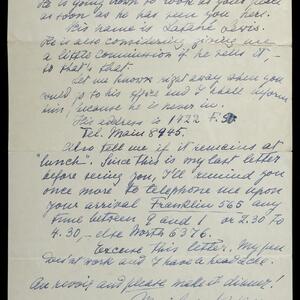 He is going down to look at your place
as soon as he has seen you here.
His name is Lavis.
He is also considering giving me
a little Commission if he sells it,
so that's that.
Let me know right away when you
could go to his office and I shall inform
him, because he is never in.
His address is 1422 F. St.
Tel. Main 8945.
Also tell me if it remains at
"lunch". Since this is my last letter
before seeing you, I'll remind you
once more to telephone me upon
your arrival Franklin 565 any
time between 9 and 1 or 2.30 to
4.30, – else North 6376.
Excuse this letter. My pen
at work and I have a headache.
Au revoir and please make it dinner!